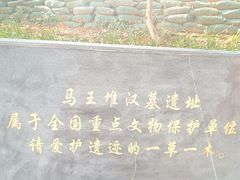 马王堆汉墓遗址
属于全国重点文物保护单位
请爱护遗迹的一草一木。